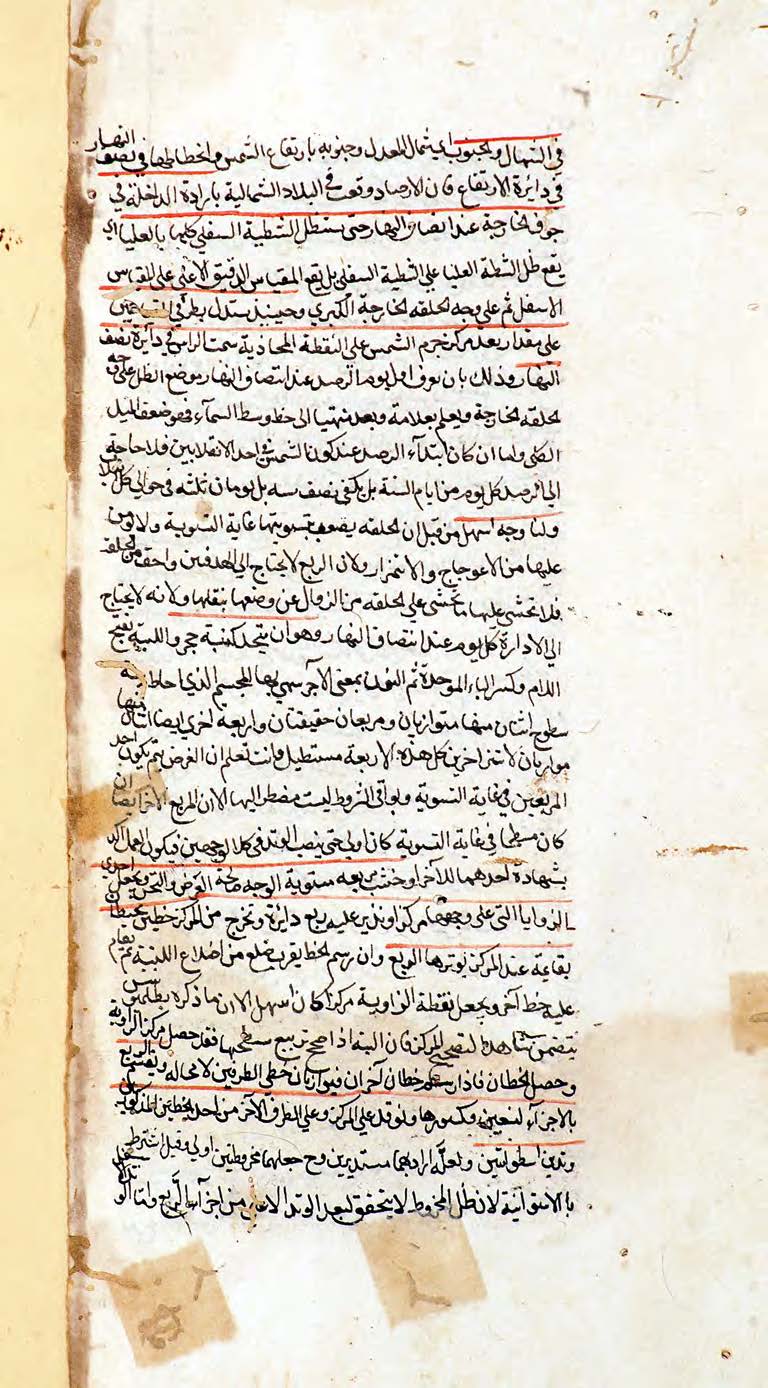 في الشمال والجنوب اي شمال المعدل وجنوبه بارتفاع الشمس وانحطاطها في نصف النهار
في دائرة الارتفاع فان الارصاد وقعت في البلاد الشمالية بارادة الداخلة في
جوف الخارجة عند انصاف النهار حتى يستظل الشظية السفلى كلها بالعليا اي
يقع ظل الشظية العليا على الشظية السفلى بل يقع المقياس الدقيق الاعلى على المقياس
الاسفل ثم على وجه الحلقه الخارجة الكبرى وحينئذ يستدل بطرفي
على مقدار بعد مركز جرم الشمس على النقطة المحاذية سمت الراس في دائرة نصف
النهار وذلك بان يعرف اول يوم الرصد عند انتصاف النهار موضع الظل على وجه
الحلقه الخارجة ويعلم بعلامة وبعد منتهيا الى خط وسط السمآء فهو ضعف الميل
الكلي واما ان كان ابتدآء الرصد عند كون الشمس في احد الانقلابين فلا حاجة
الى الرصد كل يوم من ايام السنة بل يكفي نصف سنه بل يومان ثلثه في حوالي كل
ولنا وجه اسهل من قبل ان الحلقه يصعب تسويتها غاية التسوية ولا يؤمن
عليها من الاعوجاج والانحزار ولان الربع لا يحتاج الى الهدفين واحق من الحلقه
فلا تخشى عليها ما تخشى على الحلقه من الزوال عن وضعها بنقلها ولانه لا يحتاج
الى الادارة كل يوم عند انتصاف النهار وهو ان يتخذ كلبنة حجر واللبنة بفتح
اللام وكسر الباء الموحدة ثم النون بمعنى الآجر سمي بها المجسم الذي احاط به
سطوح اثنان منها متوازيان ومربعان حقيقتان واربعة اخرى ايضا اثنان منها
موازيان لاثنين اخرين كل هذه الاربعة مستطيل وانت تعلم ان الغرض يتم بكون احد
المربعين في غاية التسوية وبواقي الشروط ليست مضطر اليها الا ان المربع الآخر ايضا ان
كان مسطحا في غاية التسوية كان اولى حتى ينصب الوتد في كلا الوجهين فيكون العمل اكد
بشهادة احدهما للآخر او خشب مربعه مستوية الوجه صالحة العرض والثخن ويجعل احدى
الزوايا التي على وجهها مركزا ونذير عليه ربع دائرة وتخرج من المركز خطين يحيطان
بقايمة عند المركز يوترها الربع وان رسم الخط بقرب ضلع من اضلاع اللبنة ثم يقام
عليه خط آخر ويجعل نقطة الزاوية مركزا كان اسهل الا ان ما ذكره بطلميوس
يتضمن شاهدا لتصحيح المركز فان البنه اذا صح تربيع سطحها فقد حصل مركز الزاوية
وحصل الخطان فاذا رسم خطان آخران فيوازيان خطي الطرفين لا محاله ويقسم الربع
بالاجزآء لتعيين وكسورها ونوقد على المركز وعلى الطرف الآخر من احد الخطين المذكورين
وتدين اسطوانتين ولعله اراد بهما مستديرين وح جعلهما مخروطين اولى وقيل اشترط
بالاستوانية لان ظل المخروط لا يتحقق لبعد الوتد الاعلى من اجزآء الربع واما الو